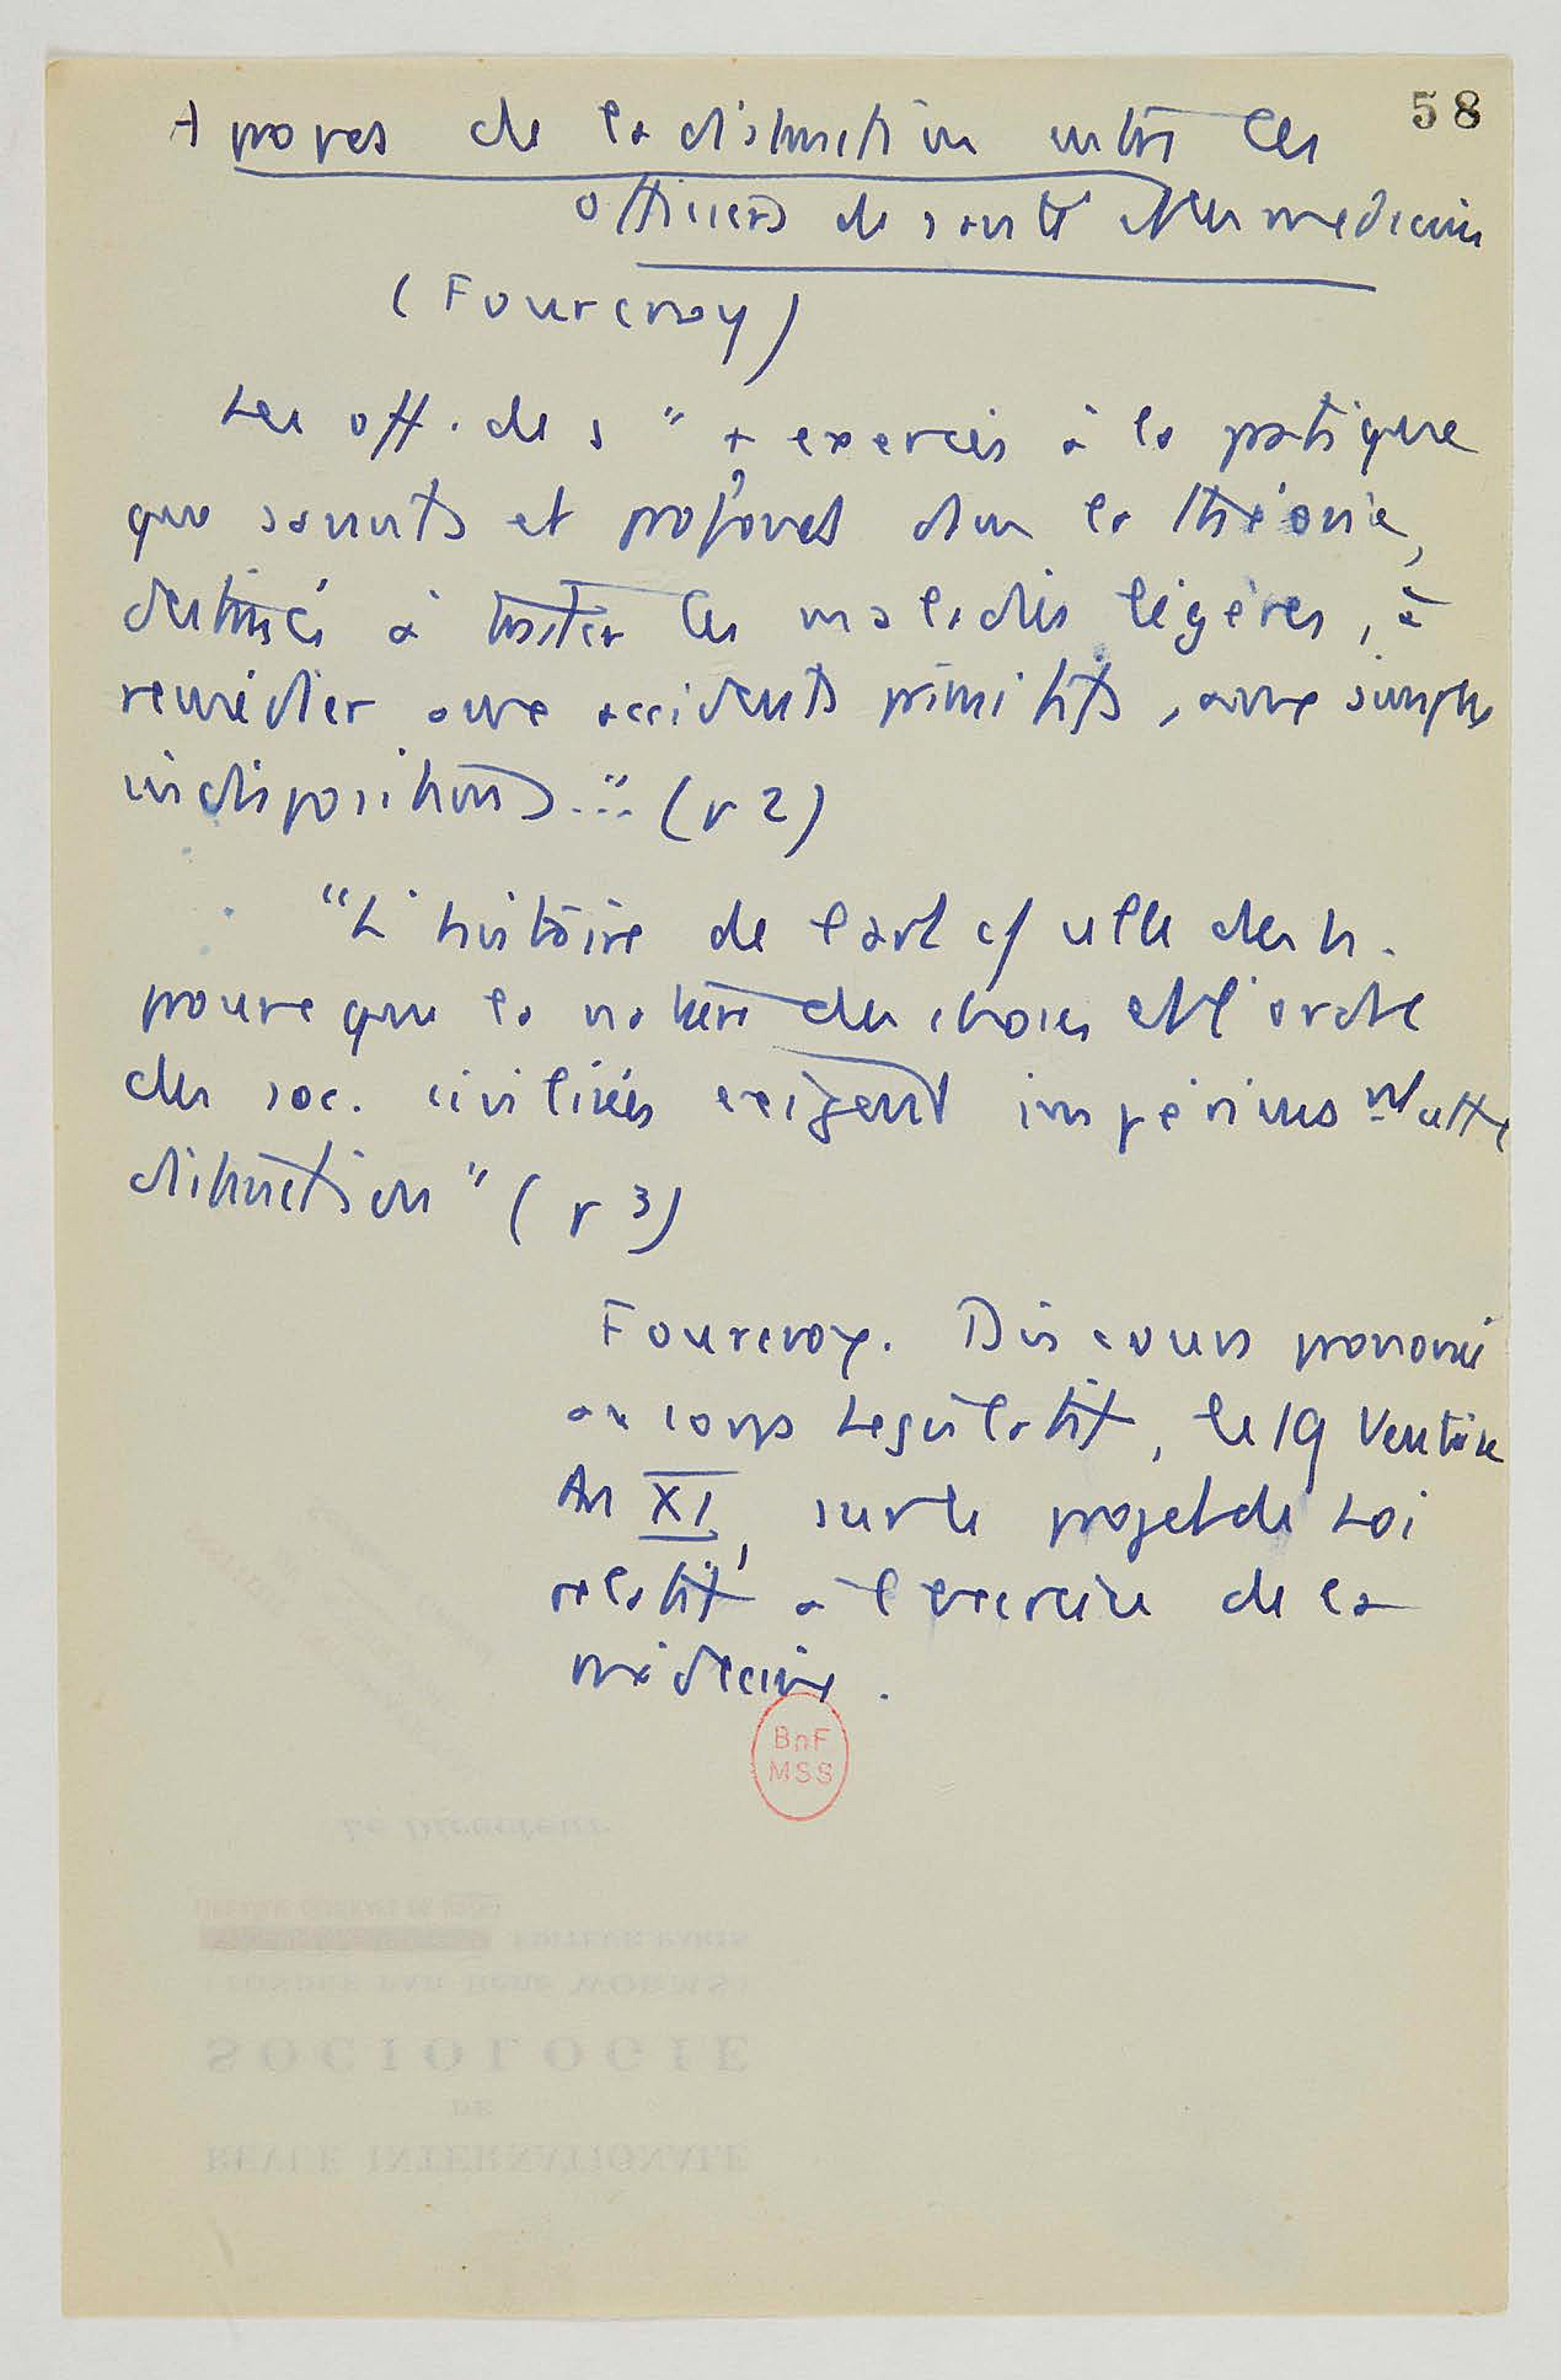 58
A propos de la distinction entre les
officiers de santé et les médecins
(Fourcroy)
Les off. de s " + exercés à la pratique
que savants et profonds dans la théorie,
destinés à traiter les maladies légères, à
remédier aux accidents primitifs, aux simples
indispositions..." (p 2)
"L'histoire de l'art c/ celle des h.
prouve que la nature des choses et l'ordre
des soc. civilisées exigent impérieusemt cette
distinction" (p 3)
Fourcroy. Discours prononcé
au corps Législatif, le 19 Ventôse
An XI, sur le projet de Loi
relatif à l'exercice de la
médecine.
BnF
MSS
Le Directeur
EDITEUR PARIS
(FONDÉE PAR René WORMS)
SOCIOLOGIE
DE
REVUE INTERNATIONALE